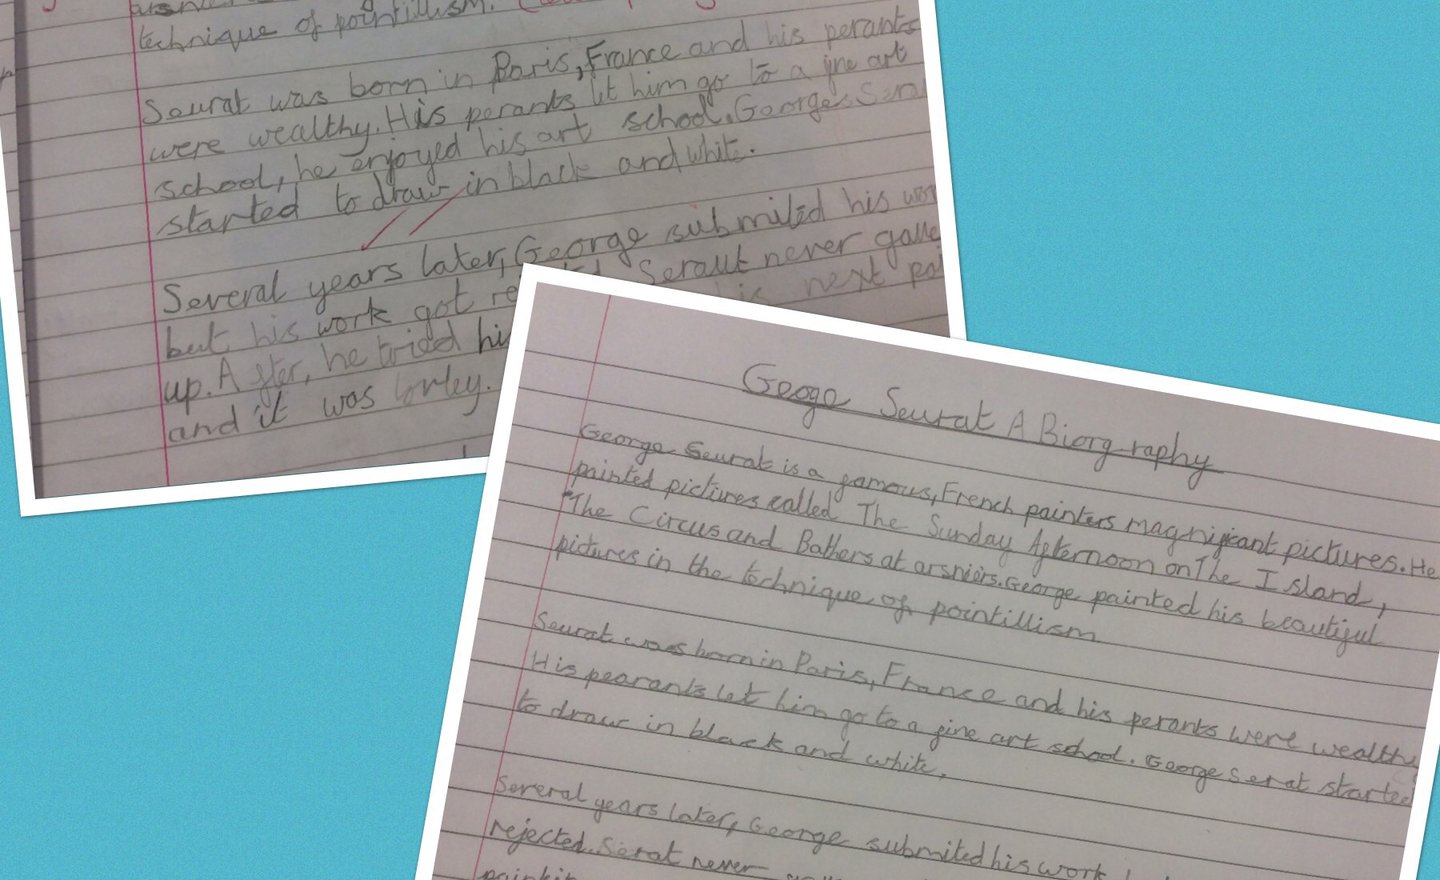 technique of pointillism.
Seurat was born in Paris, France and his perants
were wealthy. His perants let him go to a fine art
school, he enjoyed his art school. George
started to draw in black and white.
Several years later, George submited his
but his work got Seraut never gave
up. After, he tried his next
and it was
Geoge Seurat A Biorgraphy
George Seurat is a famous, French painters magnificant pictures. He
painted pictures called The Sunday Afternoon on The Island,
"The Circus and Bathers at arsniers. George painted his beautiful
pictures in the technique of pointillism
Seurat was born in Paris, France and his perants were wealthy
His pearants let him go to a fine art school. George Serat started
to draw in black and white.
Several years later, George submited his work
rejected. Serat never